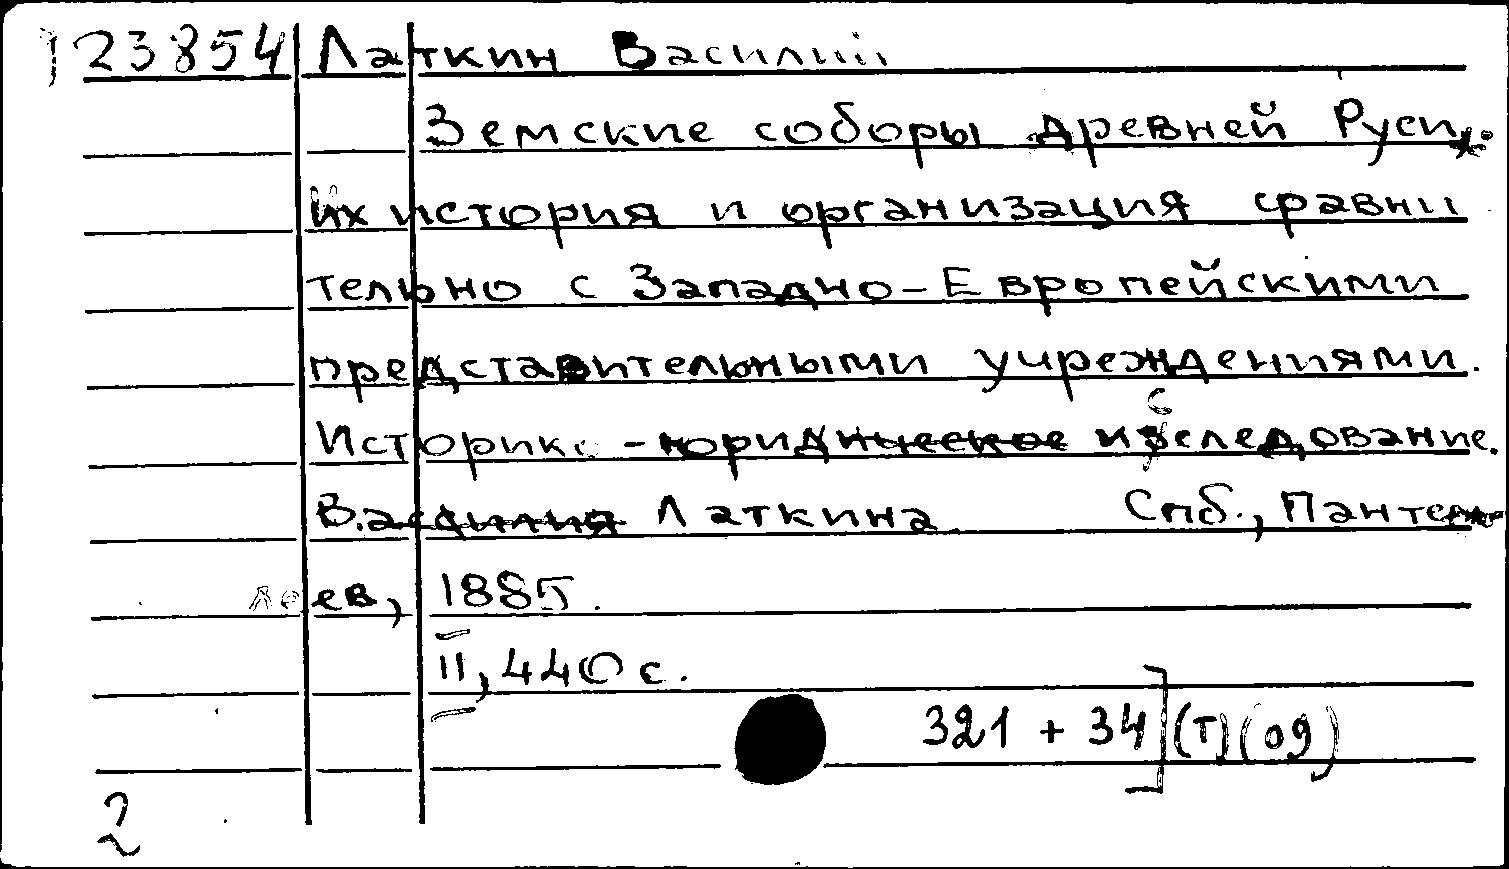 123854 Латкин Василий
Земские соборы древней Руси,
их история и организация сравни
тельно с Западно-Европейскими
представительными учреждениями.
Историко-юридическое исследование.
Василия Латкина. Спб., Панте
леев, 1885.
II, 440 с.
321 + 34](т)(09)
2